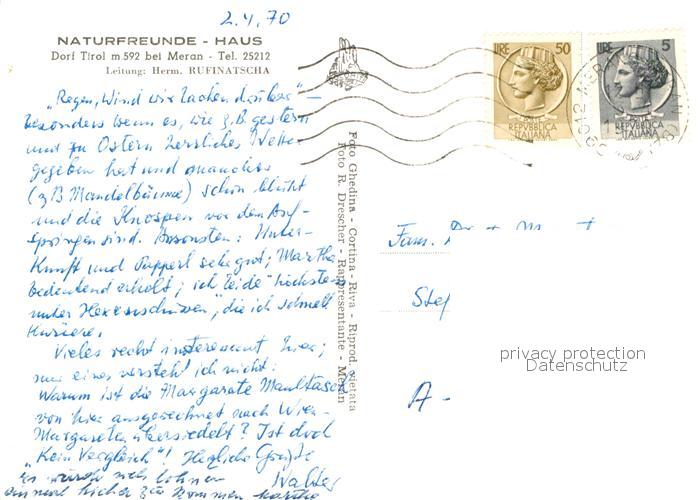 2.4.70
NATURFREUNDE - HAUS
Dorf Tirol m 592 bei Meran - Tel. 25212
Leitung: Herm. RUFINATSCHA
„Regen, Wind wir lachen darüber" –
besonders wenn es, wie z.B. gestern
und zu Ostern herrliches Wetter
gegeben hat und manches
(z B Mandelbäume) schon blüht
und die Knospen vor dem Auf-
springen sind. Ansonsten: Unter-
kunft und Papperl sehr gut; Martha
bedeutend erholt; ich leide höchstens
unter „Hexenschüssen", die ich schnell
kuriere.
Vieles recht interessant hier;
nur eines versteh ich nicht:
Warum ist die Margarate Maultasch
von hier ausgerechnet nach Wien-
Margareten übersiedelt? Ist doch
„Kein Vergleich"! Herzliche Grüße
Walter
Es würde sich lohnen
einmal hieher zu kommen Martha
Foto Ghedina - Cortina - Riva - Riprod. vietata
Foto R. Drescher - Rappresentante - Meran
LIRE 50
REPVBBLICA
ITALIANA
LIRE 5
REPVBBLICA
ITALIANA
Fam.
Stef
A -
privacy protection
Datenschutz